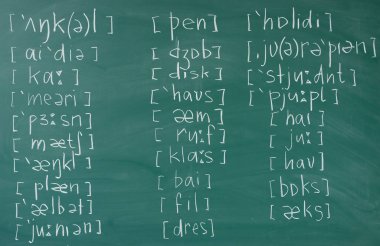 [ˈʌŋk(ə)l]
[aiˈdiə]
[kaː]
[ˈmeəri]
[ˈpɜːsn]
[mætʃ]
[ˈæŋkl]
[plæn]
[ˈælbət]
[ˈjuːniən]
[pen]
[dʒɒb]
[disk]
[ˈhaus]
[æm]
[ruːf]
[klaːs]
[bai]
[fil]
[dres]
[ˈhɒlidi]
[ˌju(ə)rəˈpiən]
[ˈstjuːdnt]
[ˈpjuːpl]
[hai]
[juː]
[hau]
[bɒks]
[æks]